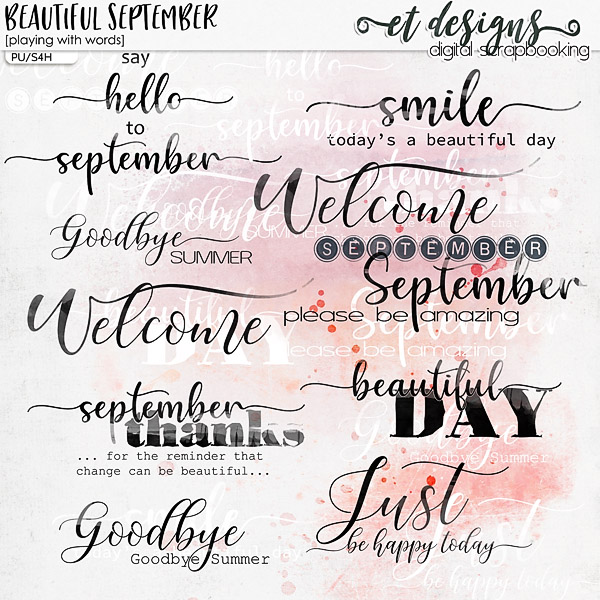 BEAUTIFUL SEPTEMBER
[playing with words]
PU/S4H
et designs
digital scrapbooking
say
hello
to
september
smile
today's a beautiful day
Goodbye
SUMMER
Welcome
SEPTEMBER
September
please be amazing
Welcome
september
thanks
... for the reminder that
change can be beautiful...
beautiful
DAY
Goodbye
Goodbye Summer
Just
be happy today